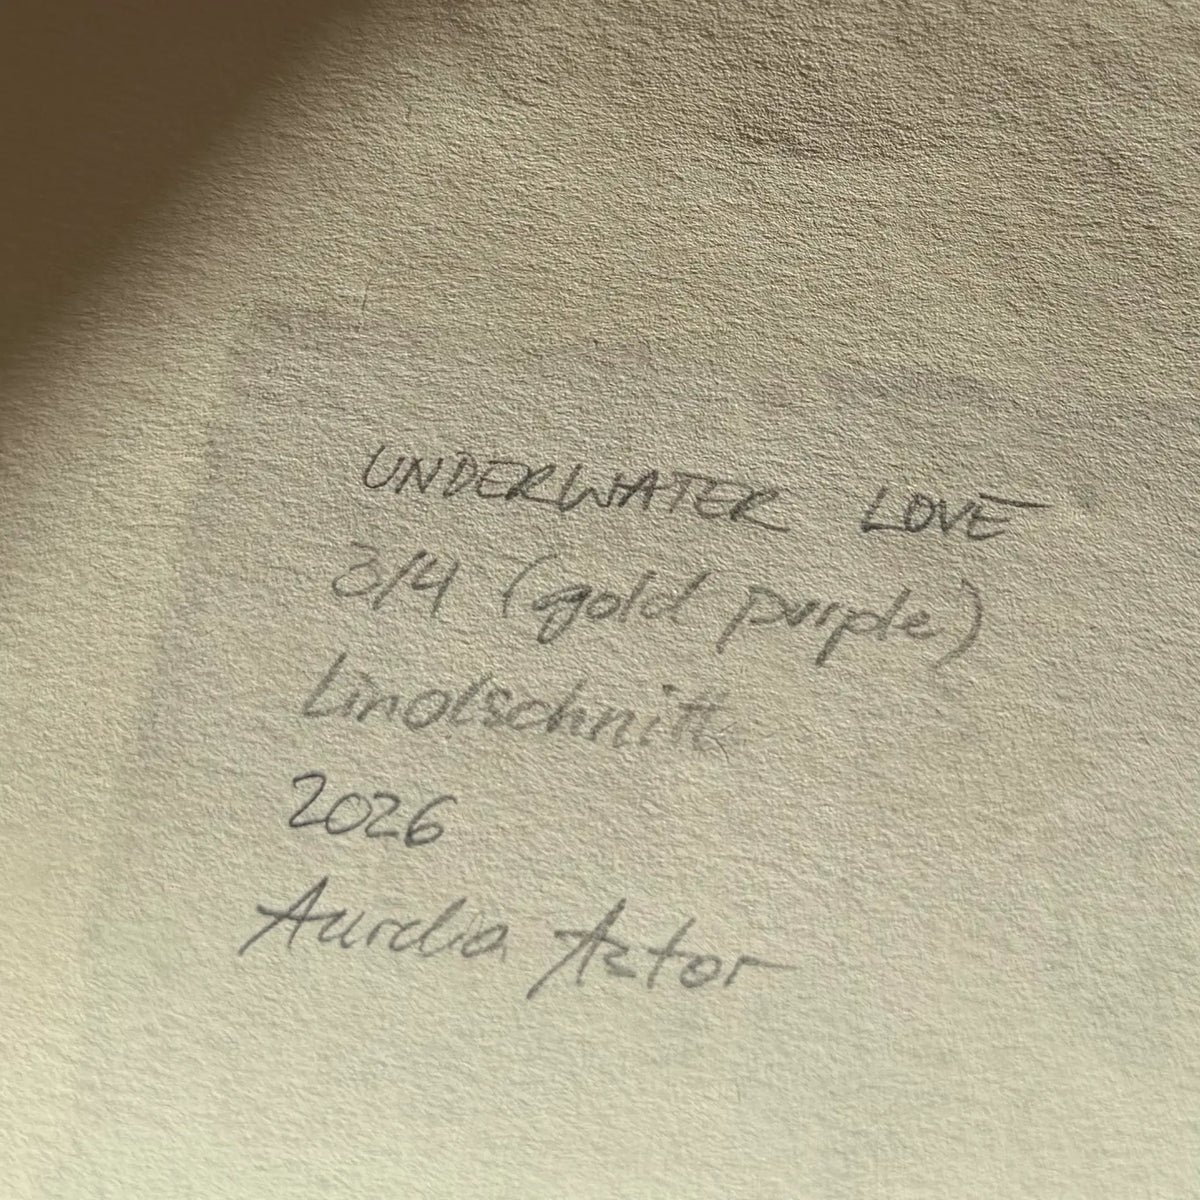 UNDERWATER LOVE
3/4 (gold purple)
Linolschnitt
2026
Aurelia Astor